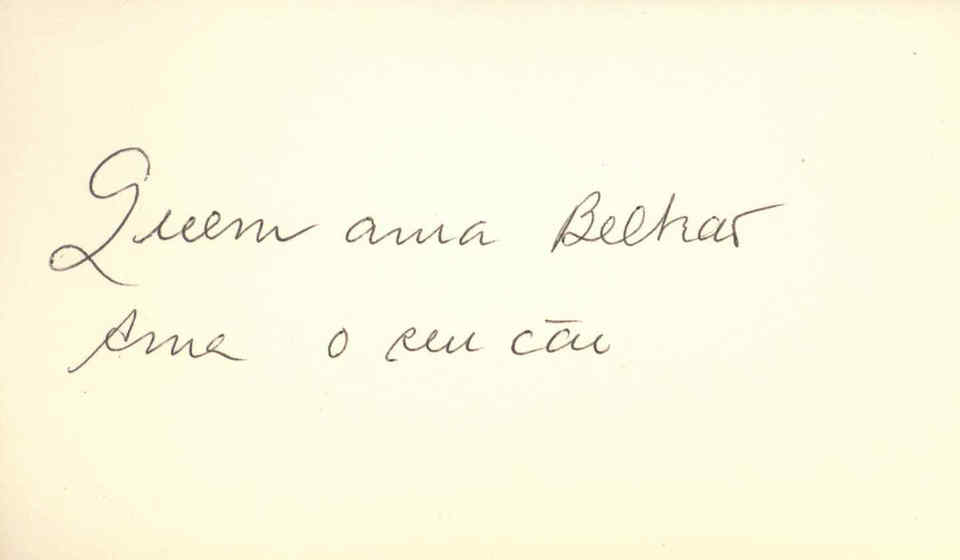 Quem ama Beltrão
Ama o seu cão